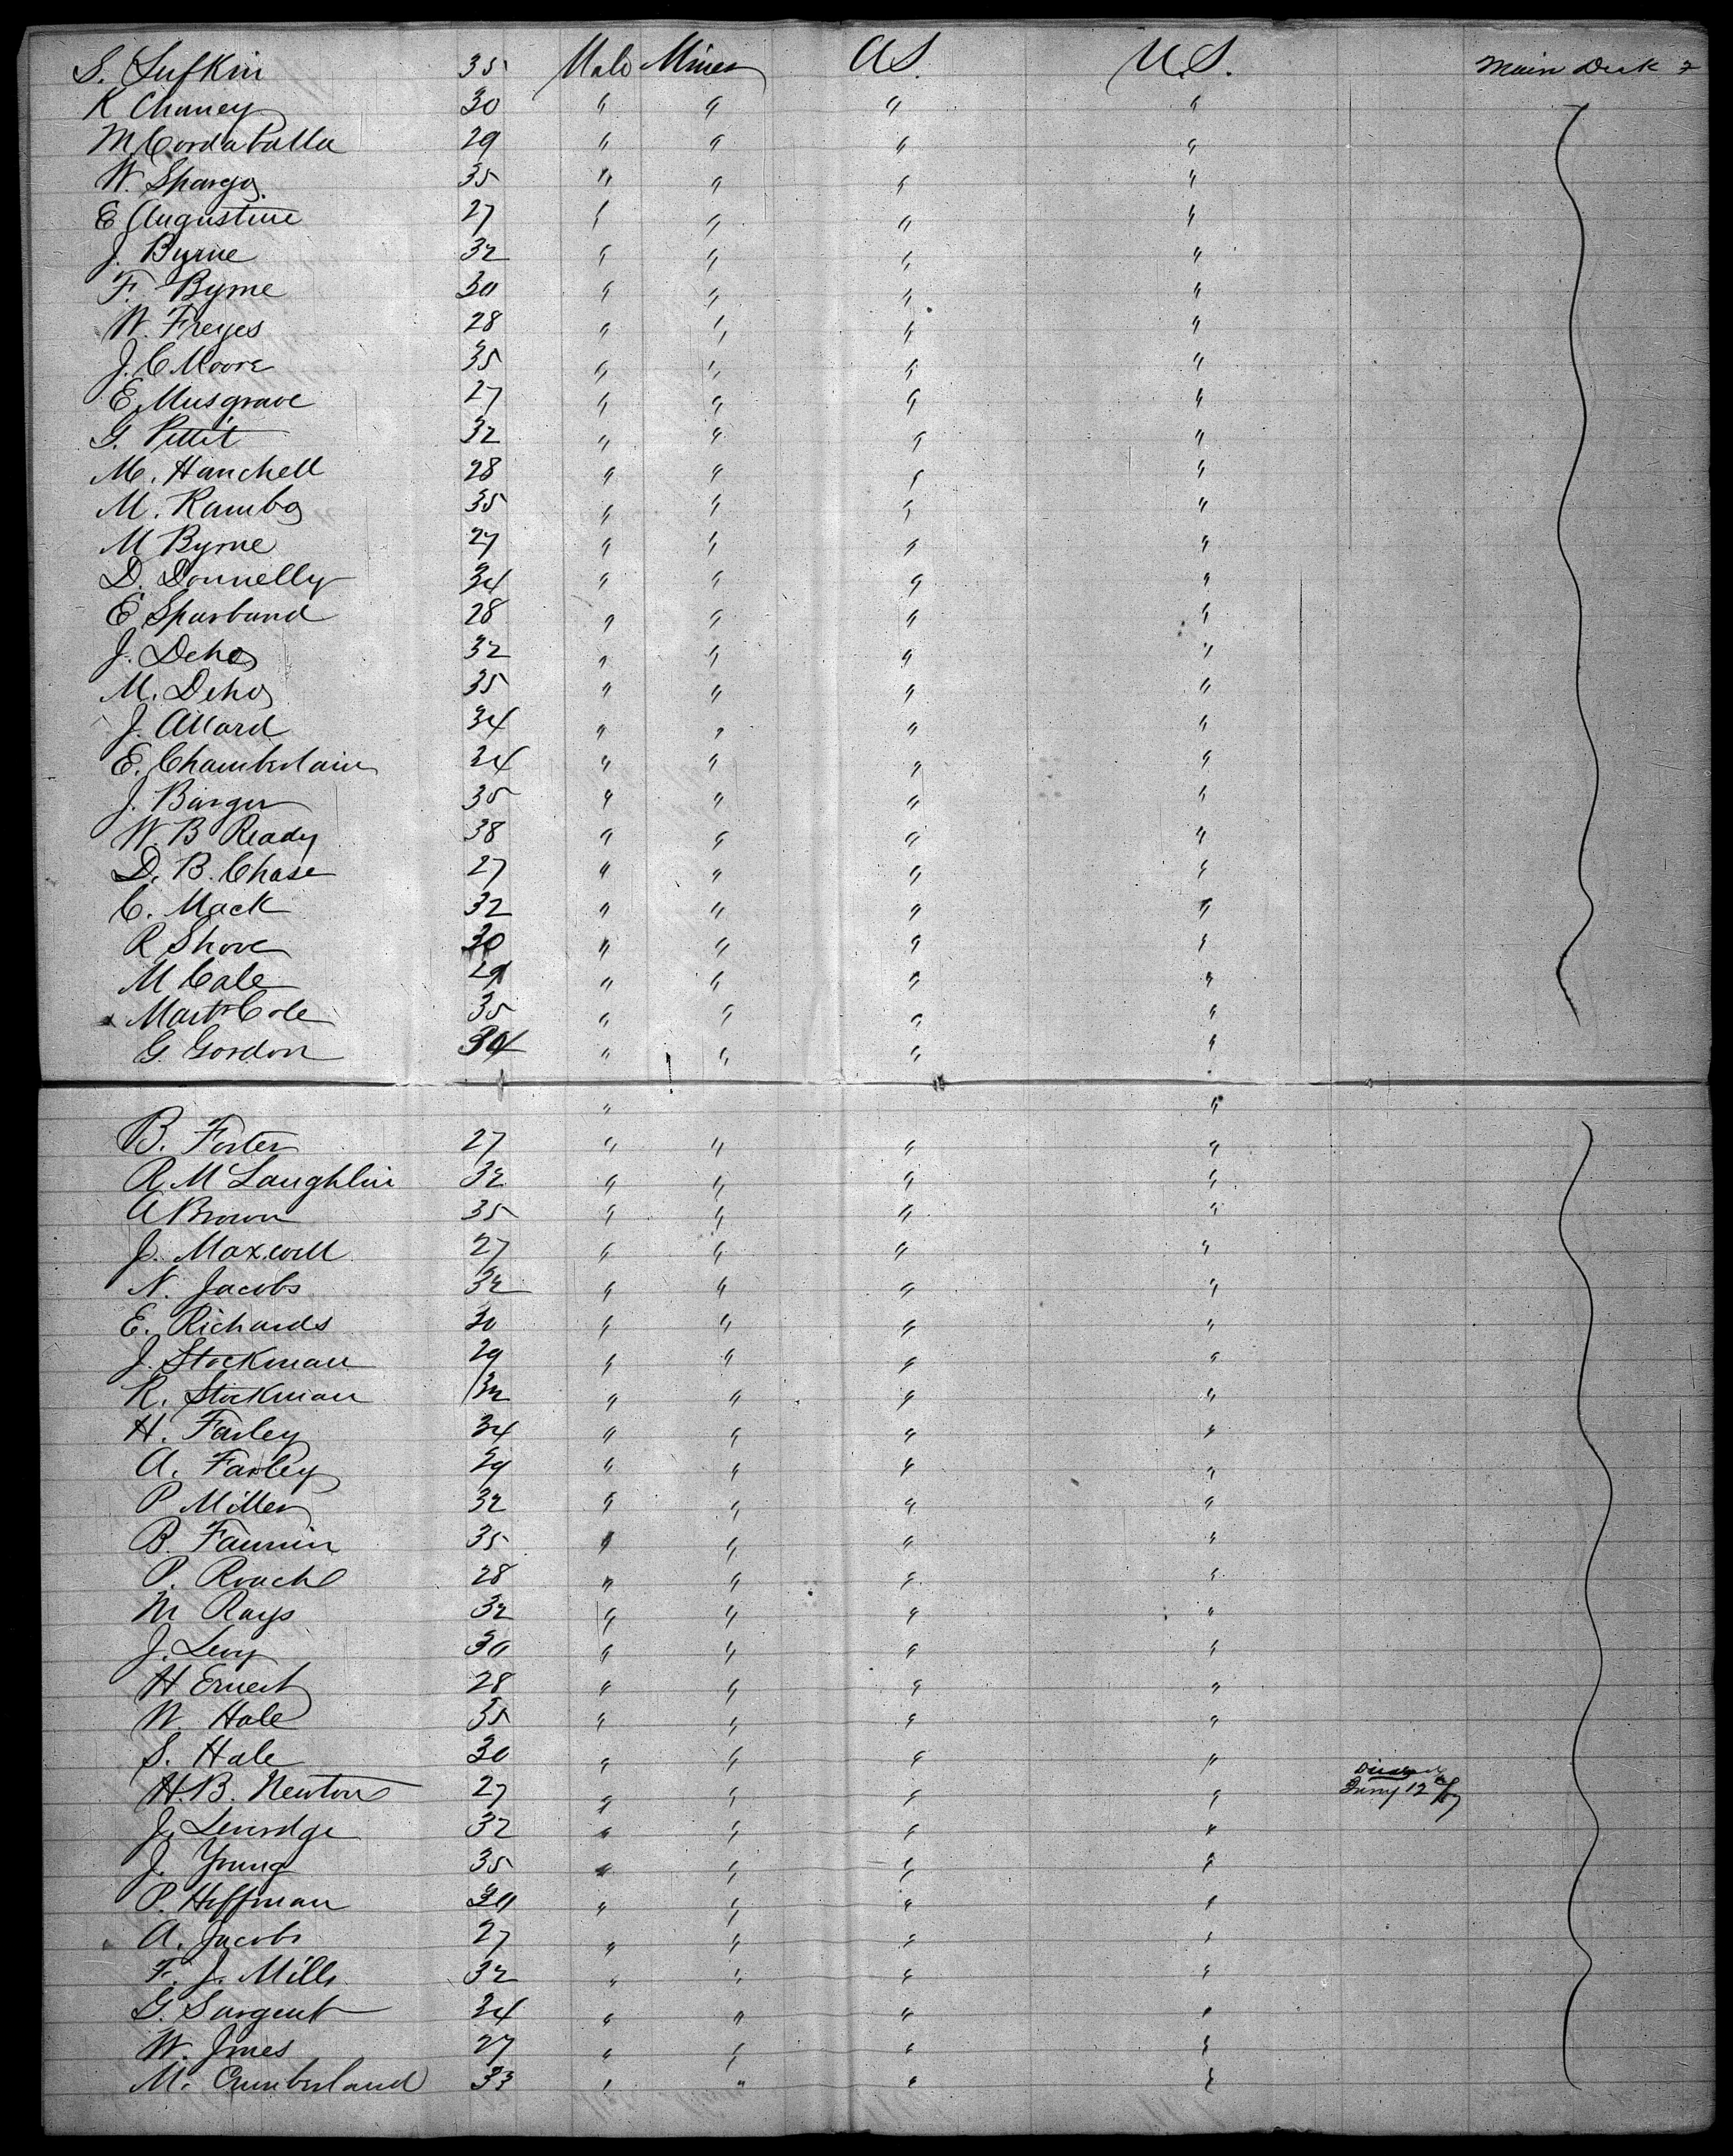 S. Lufkin 35 Male Miner U.S. U.S. Main Deck
R Chaney 30 " " " "
M Cordaballa 29 " " " "
W. Spargo 35 " " " "
E Augustine 27 " " " "
J. Byrne 32 " " " "
F. Byrne 30 " " " "
W. Freyes 28 " " " "
J. C Moore 35 " " " "
E. Musgrave 27 " " " "
G. Pettit 32 " " " "
M. Hanchell 28 " " " "
M. Rambo 35 " " " "
M Byrne 27 " " " "
D. Donnelly 34 " " " "
E Sparband 28 " " " "
J. Deho 32 " " " "
M. Deho 35 " " " "
J. Allard 34 " " " "
E. Chamberlain 24 " " " "
J. Barger 35 " " " "
W. B Ready 38 " " " "
D. B. Chase 27 " " " "
C. Mack 32 " " " "
R Shove 30 " " " "
M Cale 29 " " " "
Mart Cole 35 " " " "
G. Gordon 34 " " " "
" "
B. Foster 27 " " " "
R. M Laughlin 32 " " " "
A Brown 35 " " " "
J. Maxwell 27 " " " "
N. Jacobs 32 " " " "
E. Richards 30 " " " "
J. Stockman 29 " " " "
R. Stockman 32 " " " "
H. Farley 34 " " " "
A. Farley 29 " " " "
P Miller 32 " " " "
B. Fannin 35 " " " "
P. Roach 28 " " " "
M Rays 32 " " " "
J. Levy 30 " " " "
H Ernest 28 " " " "
W. Hale 35 " " " "
S. Hale 30 " " " "
H. B. Newton 27 " " " " 12
J. Leverdge 32 " " " "
J. Young 35 " " " "
P. Hoffman 30 " " " "
A. Jacobs 27 " " " "
F. J. Mills 32 " " " "
G. Sargent 34 " " " "
W. Jones 27 " " " "
M. Cumberland 33 " " " "